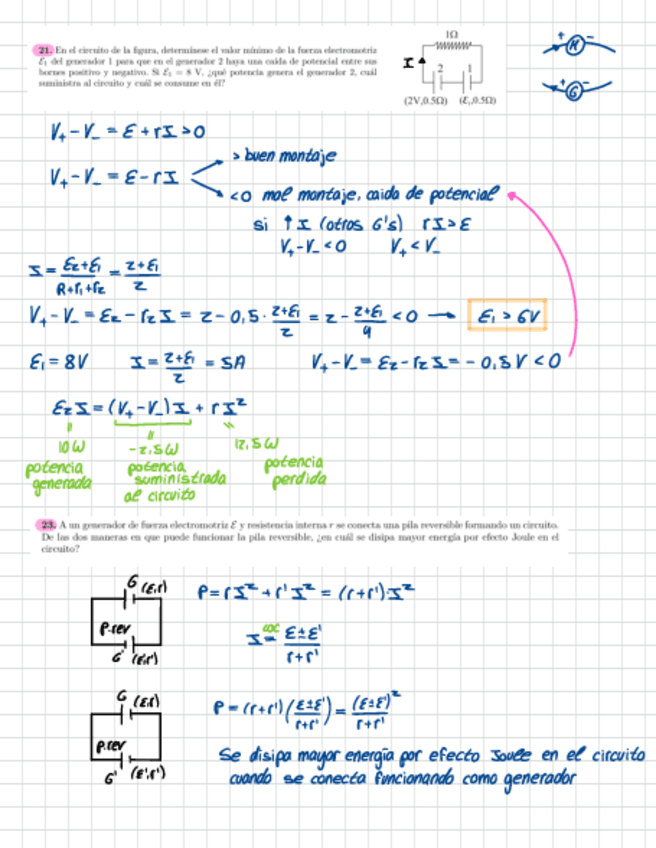 21. En el circuito de la figura, determínese el valor mínimo de la fuerza electromotriz
ℰ₁ del generador 1 para que en el generador 2 haya una caída de potencial entre sus
bornes positivo y negativo. Si ℰ₁ = 8 V, ¿qué potencia genera el generador 2, cuál
suministra al circuito y cuál se consume en él?
1Ω
I
2 1
(2V,0.5Ω) (ℰ₁,0.5Ω)
+ M -
+ G -
V₊ - V₋ = ε + rI > 0
V₊ - V₋ = ε - rI
> buen montaje
<0 mal montaje, caida de potencial
si ↑I (otros G's) rI > ε
V₊ - V₋ < 0 V₊ < V₋
I = (ε₂+ε₁)/(R+r₁+r₂) = (2+ε₁)/2
V₊ - V₋ = ε₂ - r₂I = 2 - 0,5 · (2+ε₁)/2 = 2 - (2+ε₁)/4 < 0 → ε₁ > 6V
ε₁ = 8V I = (2+ε₁)/2 = 5A V₊ - V₋ = ε₂ - r₂I = -0,5V < 0
ε₂I = (V₊ - V₋)I + rI²
10W -2,5W 12,5W
potencia generada
potencia suministrada al circuito
potencia perdida
23. A un generador de fuerza electromotriz ℰ y resistencia interna r se conecta una pila reversible formando un circuito.
De las dos maneras en que puede funcionar la pila reversible, ¿en cuál se disipa mayor energía por efecto Joule en el
circuito?
G (ε,r)
P.rev
G' (ε',r')
P = rI² + r'I² = (r+r')·I²
I = (ε±ε')/(r+r')
G (ε,r)
P.rev
G' (ε',r')
P = (r+r')((ε±ε')/(r+r')) = (ε±ε')²/(r+r')
Se disipa mayor energía por efecto Joule en el circuito
cuando se conecta funcionando como generador